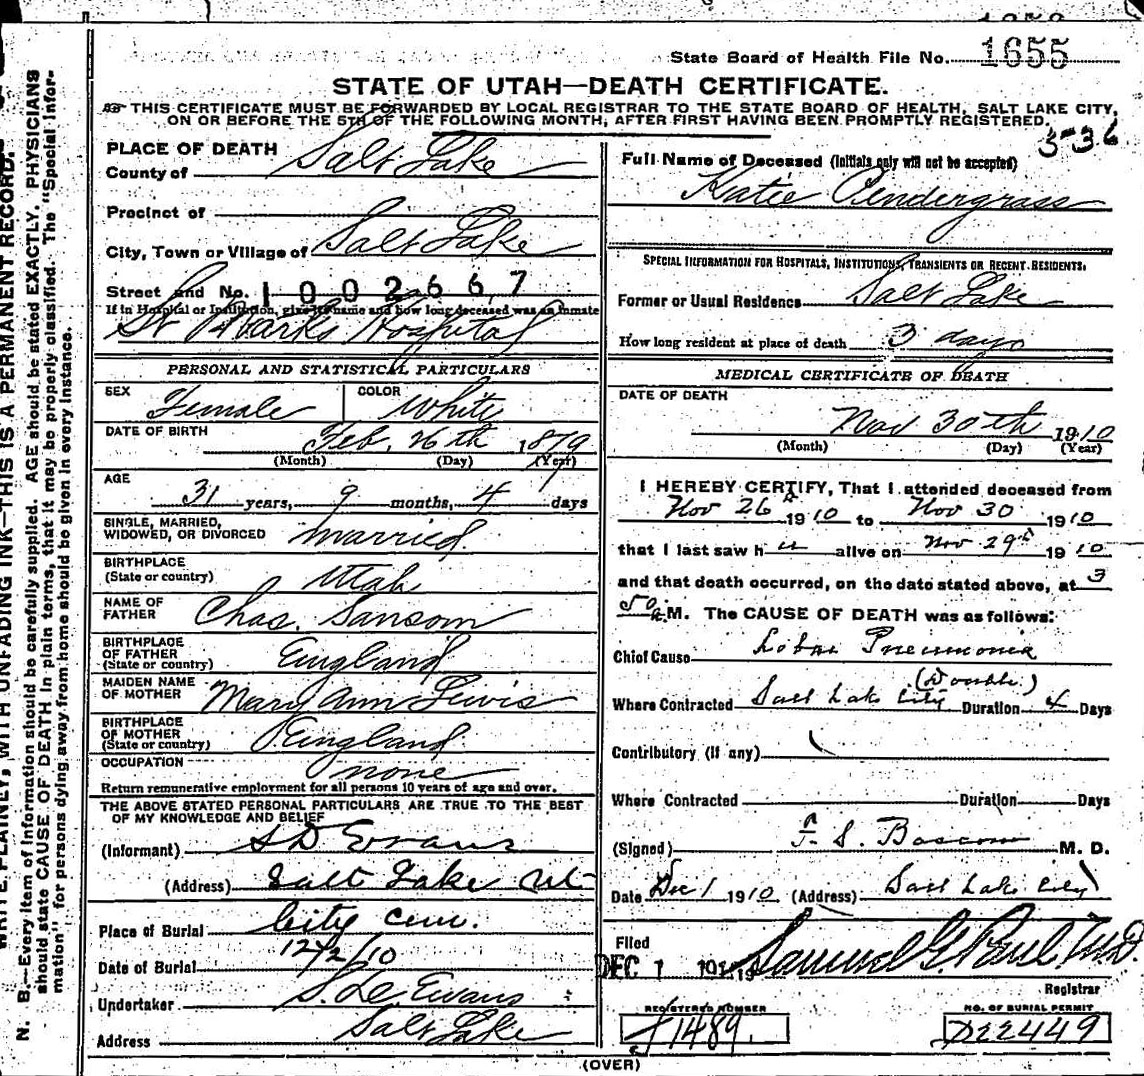 State Board of Health File No. 1655
STATE OF UTAH—DEATH CERTIFICATE.
THIS CERTIFICATE MUST BE FORWARDED BY LOCAL REGISTRAR TO THE STATE BOARD OF HEALTH, SALT LAKE CITY,
ON OR BEFORE THE 5TH OF THE FOLLOWING MONTH, AFTER FIRST HAVING BEEN PROMPTLY REGISTERED.
536
PLACE OF DEATH
County of Salt Lake
Precinct of
City, Town or Village of Salt Lake
Street and No. 1002667
If in Hospital or Institution, give its name and how long deceased was an inmate
St Marks Hospital
PERSONAL AND STATISTICAL PARTICULARS
SEX Female COLOR White
DATE OF BIRTH Feb. 26th 1879
(Month) (Day) (Year)
AGE
31 years, 9 months, 4 days
SINGLE, MARRIED,
WIDOWED, OR DIVORCED married.
BIRTHPLACE
(State or country) Utah
NAME OF
FATHER Chas. Sansom
BIRTHPLACE
OF FATHER
(State or country) England
MAIDEN NAME
OF MOTHER Mary Ann Lewis
BIRTHPLACE
OF MOTHER
(State or country) England
OCCUPATION none
Return remunerative employment for all persons 10 years of age and over.
THE ABOVE STATED PERSONAL PARTICULARS ARE TRUE TO THE BEST
OF MY KNOWLEDGE AND BELIEF
(Informant) S D Evans
(Address) Salt Lake Ut
Place of Burial City Cem.
Date of Burial 12/2/10
Undertaker S. D. Evans
Address Salt Lake
Full Name of Deceased (Initials only will not be accepted)
Katie Pendergrass
SPECIAL INFORMATION FOR HOSPITALS, INSTITUTIONS, TRANSIENTS OR RECENT RESIDENTS.
Former or Usual Residence Salt Lake
How long resident at place of death 3 days
MEDICAL CERTIFICATE OF DEATH
DATE OF DEATH
Nov 30th 1910
(Month) (Day) (Year)
I HEREBY CERTIFY, That I attended deceased from
Nov 26 1910 to Nov 30 1910
that I last saw her alive on Nov 29th 1910
and that death occurred, on the date stated above, at 3
50 a M. The CAUSE OF DEATH was as follows:
Chief Cause Lobar Pneumonia
(Double)
Where Contracted Salt Lake City Duration 4 Days
Contributory (if any)
Where Contracted Duration Days
(Signed) F. S. Bascom M. D.
Date Dec 1 1910 (Address) Salt Lake City
Filed
DEC 1 191 19 Samuel G. Paul M.D.
Registrar
REGISTERED NUMBER
J1489.
NO. OF BURIAL PERMIT
D22449
(OVER)
WRITE PLAINLY, WITH UNFADING INK—THIS IS A PERMANENT RECORD.
N. B.—Every item of information should be carefully supplied. AGE should be stated EXACTLY. PHYSICIANS
should state CAUSE OF DEATH in plain terms, that it may be properly classified. The "Special Infor-
mation" for persons dying away from home should be given in every instance.